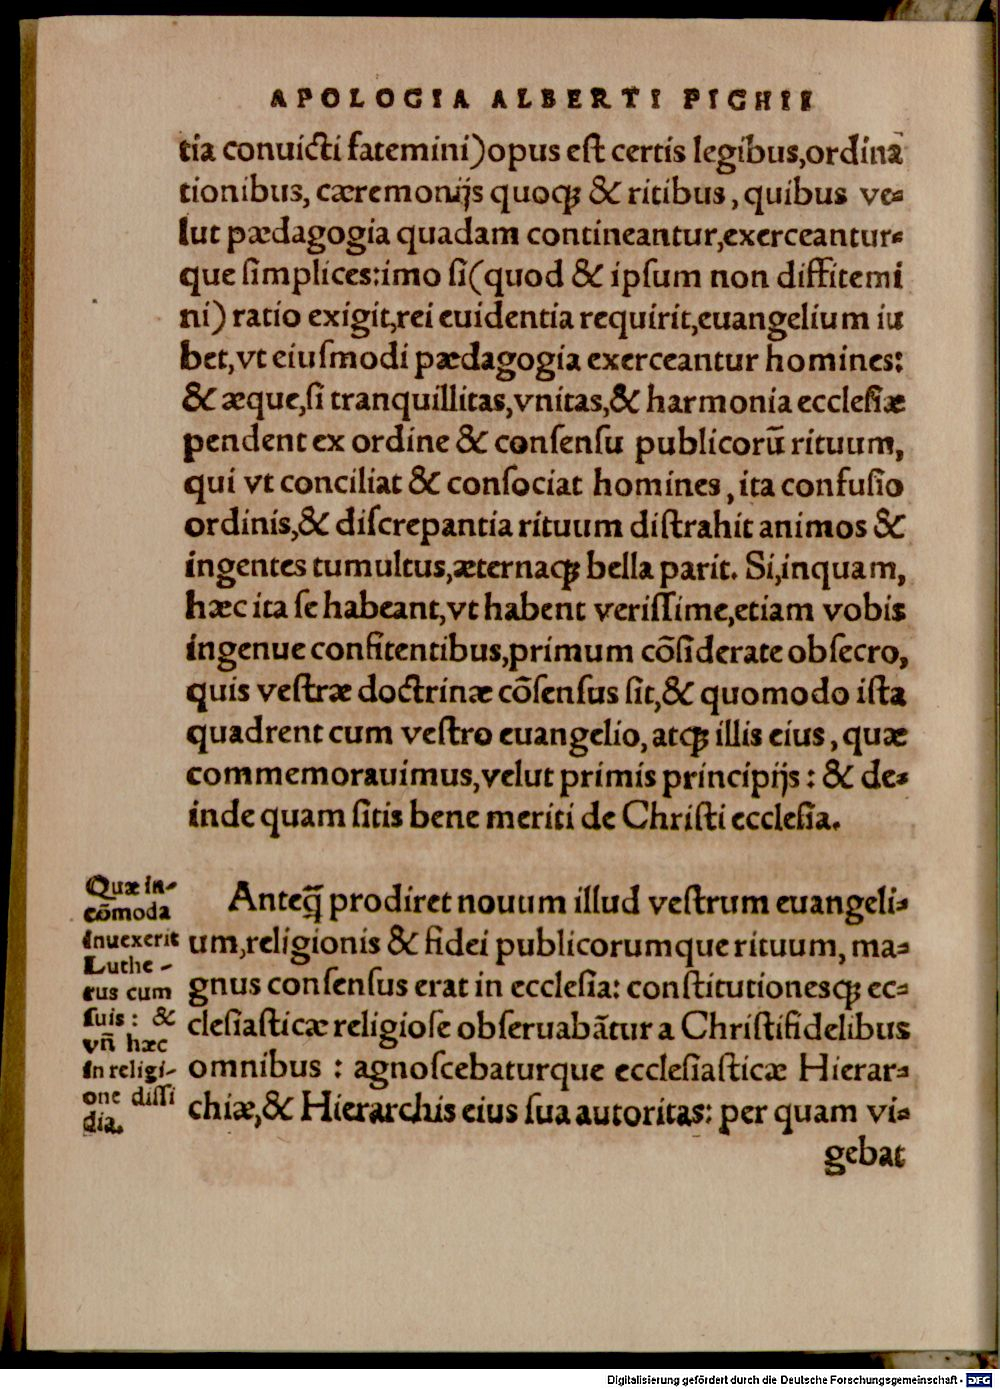 APOLOGIA ALBERTI PIGHII
tia conuicti fatemini)opus est certis legibus,ordinā
tionibus, cæremonijs quoqꝫ & ritibus, quibus ve-
lut pædagogia quadam contineantur,exerceantur-
que simplices:imo si(quod & ipsum non diffitemi
ni) ratio exigit,rei euidentia requirit,euangelium iu
bet,vt eiusmodi pædagogia exerceantur homines:
& æque,si tranquillitas,vnitas,& harmonia ecclesiæ
pendent ex ordine & consensu publicorū rituum,
qui vt conciliat & consociat homines, ita confusio
ordinis,& discrepantia rituum distrahit animos &
ingentes tumultus,æternaqꝫ bella parit. Si,inquam,
hæc ita se habeant,vt habent verissime,etiam vobis
ingenue confitentibus,primum cōsiderate obsecro,
quis vestræ doctrinæ cōsensus sit,& quomodo ista
quadrent cum vestro euangelio, atqꝫ illis eius, quæ
commemorauimus,velut primis principijs: & de-
inde quam sitis bene meriti de Christi ecclesia.
Quæ in-
cōmoda
inuexerit
Luthe-
rus cum
suis: &
vñ hæc
in religi-
one dissi
dia.
Anteq̃ prodiret nouum illud vestrum euangeli-
um,religionis & fidei publicorumque rituum, ma-
gnus consensus erat in ecclesia: constitutionesqꝫ ec-
clesiasticæ religiose obseruabātur a Christifidelibus
omnibus: agnoscebaturque ecclesiasticæ Hierar-
chiæ,& Hierarchis eius sua autoritas: per quam vi-
gebat
Digitalisierung gefördert durch die Deutsche Forschungsgemeinschaft - DFG